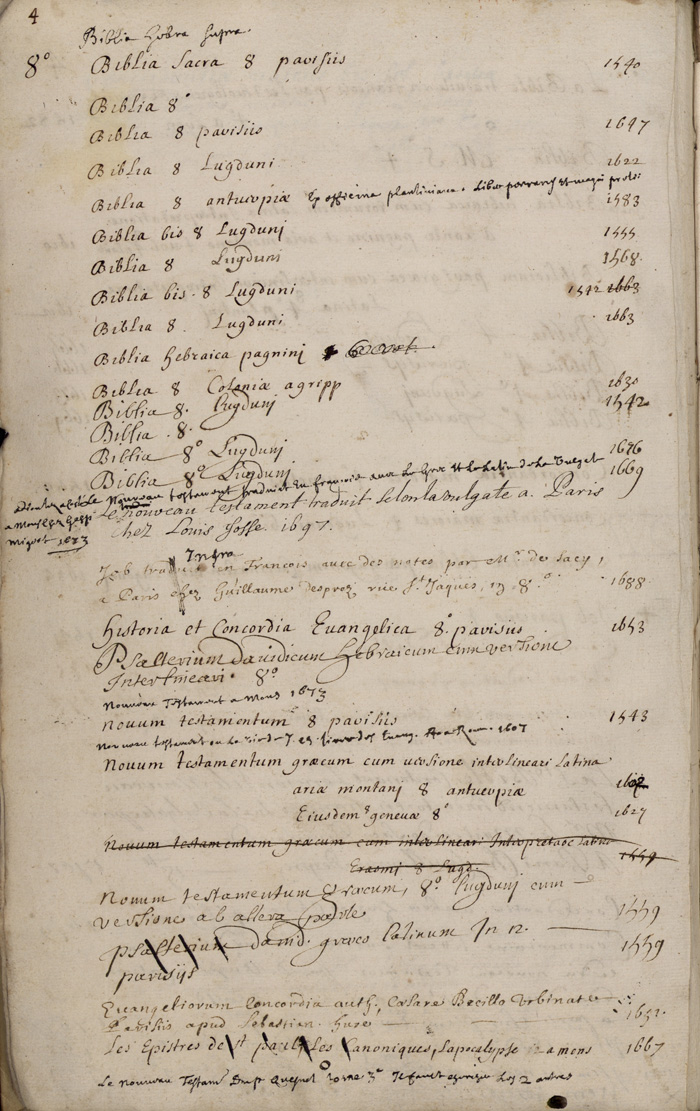 4
Biblia hebra supra.
8° Biblia Sacra 8 parisiis 1540
Biblia 8°
Biblia 8 parisiis 1647
Biblia 8 Lugduni 1622
Biblia 8 antuerpiæ Ex officina plantiniana. Liber 1583
Biblia bis 8 Lugdunj 1555
Biblia 8 Lugduni 1568.
Biblia bis. 8 Lugduni 1542 1663
Biblia 8. Lugduni 1663
Biblia hebraica pagninj
Biblia 8 Coloniæ agripp 1630
Biblia 8. Lugdunj 1542
Biblia .8.
Biblia 8° Lugdunj 1676
Biblia 8° Lugdunj 1669
Nouveau testament traduit en francois avec le grec et le latin de la Vulgat
a Mons chez
Migeot 1673
Le nouveau testament traduit selon la vulgate a Paris
chez Louis Josse. 1697.
Infra
Job traduit en Francois avec des notes par Mr. de Sacy,
a Paris chez Guillaume desprez rue St Jaques, in 8.° 1688
Historia et Concordia Euangelica 8° parisiis 1653
Psalterium dauidicum hebraicum cum versione
Interlineari 8°
Nouveau Testament a Mons 1673
Nouum testamentum 8 parisiis 1543
Nouueau testament 1607
Nouum testamentum græcum cum uersione interlineari latina
ariæ montanj 8 antuerpiæ
Eiusdem genevæ 8° 1627
Nouum testamentum græcum cum interlineari Interpretaoe latina
Erasmj 8 Lugd. 1559
Nouum testamentum Græcum, 8° Lugdunj cum
versione ab altera parte 1559
psalterium dauid. græco latinum In 12. 1559
parisijs
Euangeliorum Concordia auth, Cæsare Becillo Urbinate
Parisiis apud Sebastian. hure 1652.
Les Epistres de St paul, Les Canoniques, Lapocalypse a mons 1667
Le nouveau Testam. Du p. Quesnel Tome 3e Il faut les 2 autres